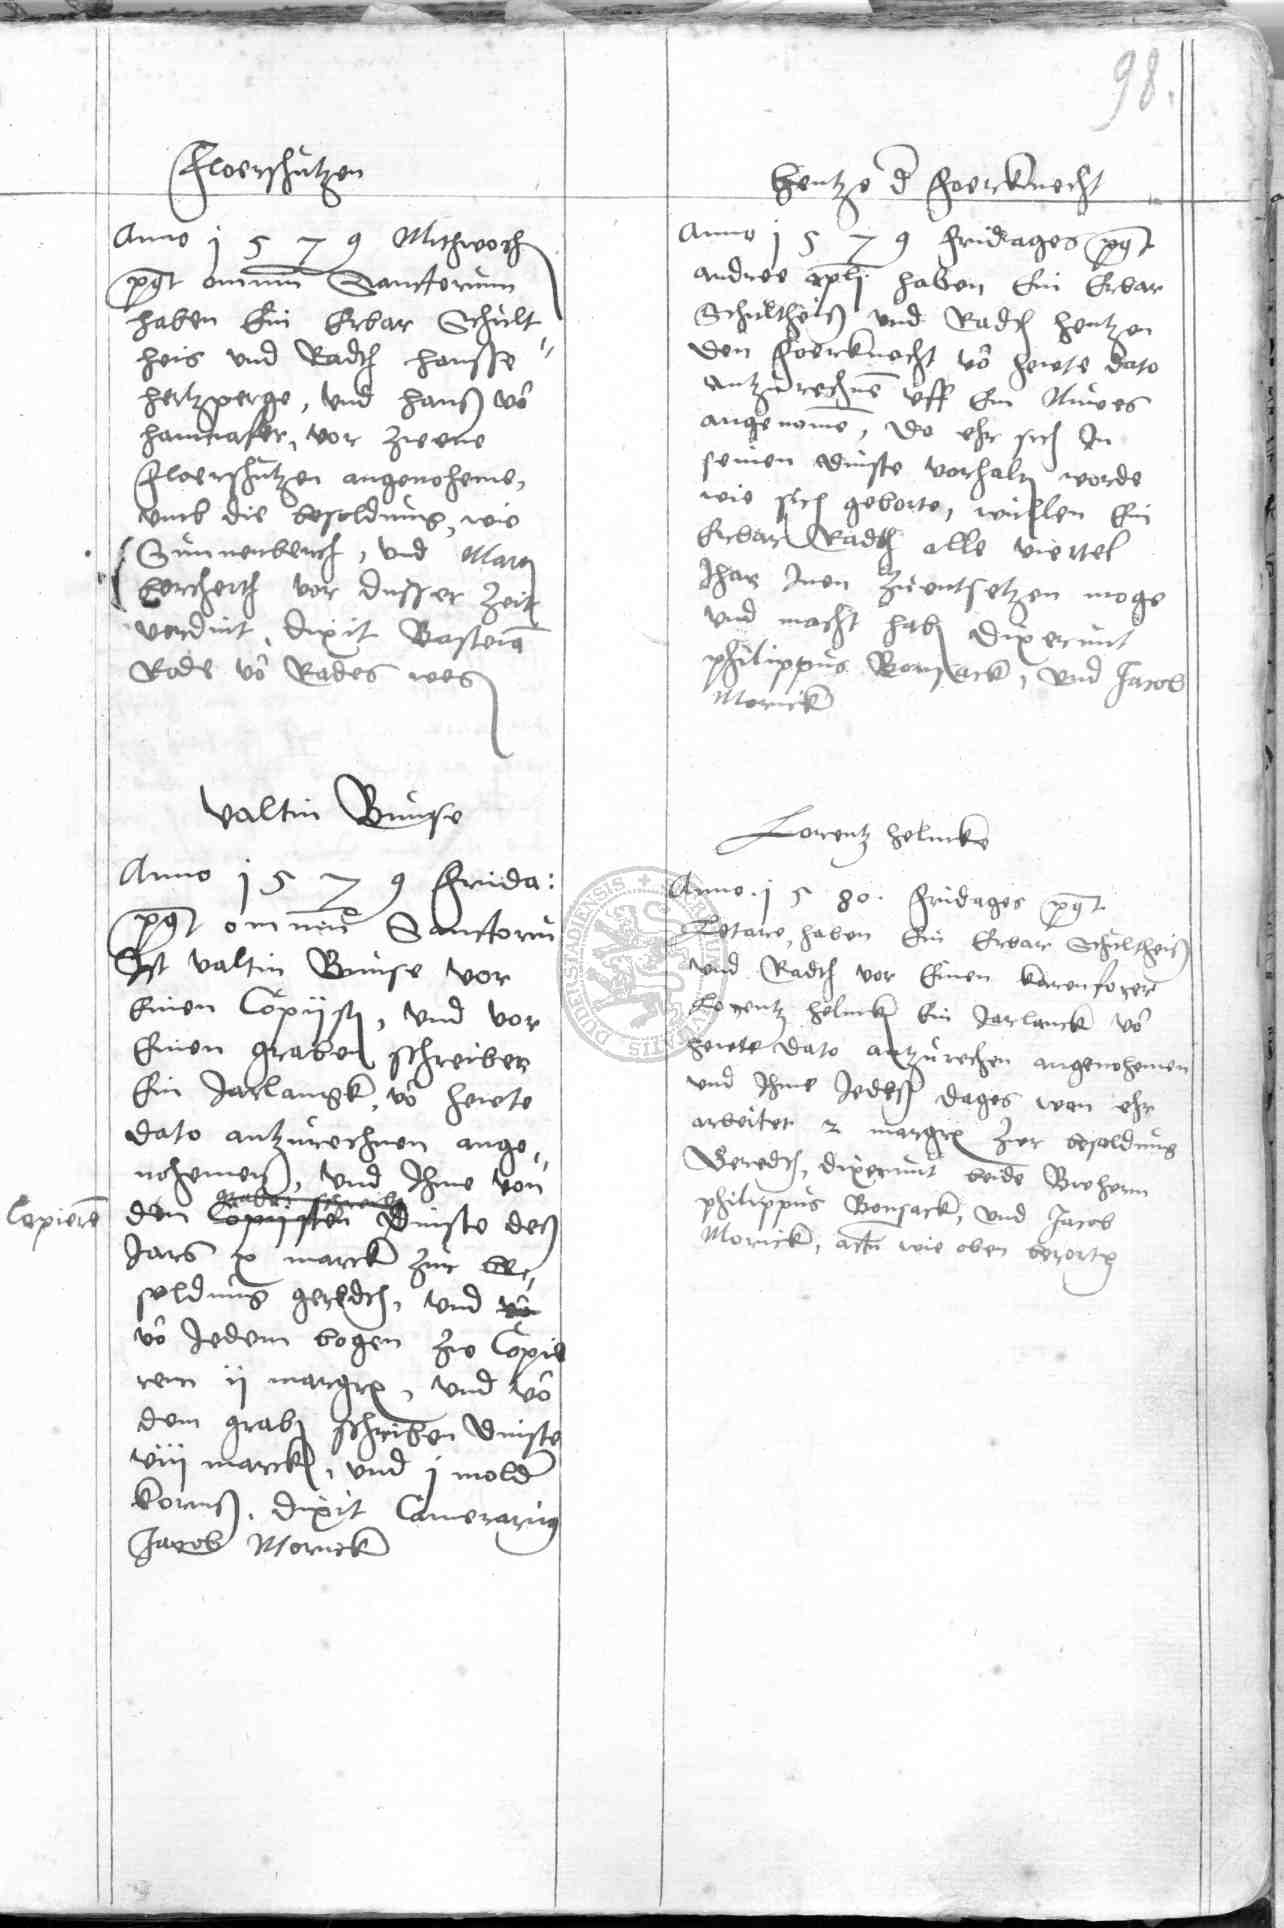 98.
Floerschutzen
Anno 1579 Mithwoch
post omnium Sanctorum
haben Ein Erbar Schult
heis und Radth Hansse
Hertzperge, und Hanß võ
vor zweene
Floerschutzen angenohmen,
umb die besoldung, wie
und
vor dusser zeit
verdint, dixit Bastian
Rode võ Rades weg
Valtin Bunse
Anno 1579 Frida:
post omniũ Sanctorũ
Ist Valtin Bunse vor
Einen Copiist, und vor
Einen graben schreiber
Ein Jarlangk, võ heute
dato antzurechnen ange„
nohemen, und Ihme von
den Copiisten Dinste deß
Copierẽ
Jars x marck zur be„
soldung geredth, und võ
võ Jedem bogen zu Copie
ren ij margr, und võ
dem grab schreiben Dinste
viij marck, und j mold
Korns. dixit Camerarius
Jacob Morick
Hentze d Floerknecht
Anno 1579 Fridages post
Andree apli haben Ein Erbar
Schultheiß und Radth Hentzen
den Floerknecht võ heute dato
antzurechnẽ uff Ein Nuwes
angenomẽ, do ehr sich In
seinen dinste vorhalt worde
wie sich geborte, Ein
Erbar Radth alle viertel
Jhar Inen zuentsetzen moge
und macht hab dixerunt
Philippus Bonsack, und Jacob
Morick
Lorentz Helmke
Anno. 1580. Fridages post
Letare, haben Ein Erbar Schultheiß
und Radth vor Einen karenforer
Lorentz Helmck Ein Jarlanck võ
heute dato antzurechen angenohemen
und Ihme Jedeß dages wen ehr
arbeitet 2 margr zur besoldung
Geredth, dixerunt beide
Philippus Bonsack, und Jacob
Morick, actũ wie oben berort